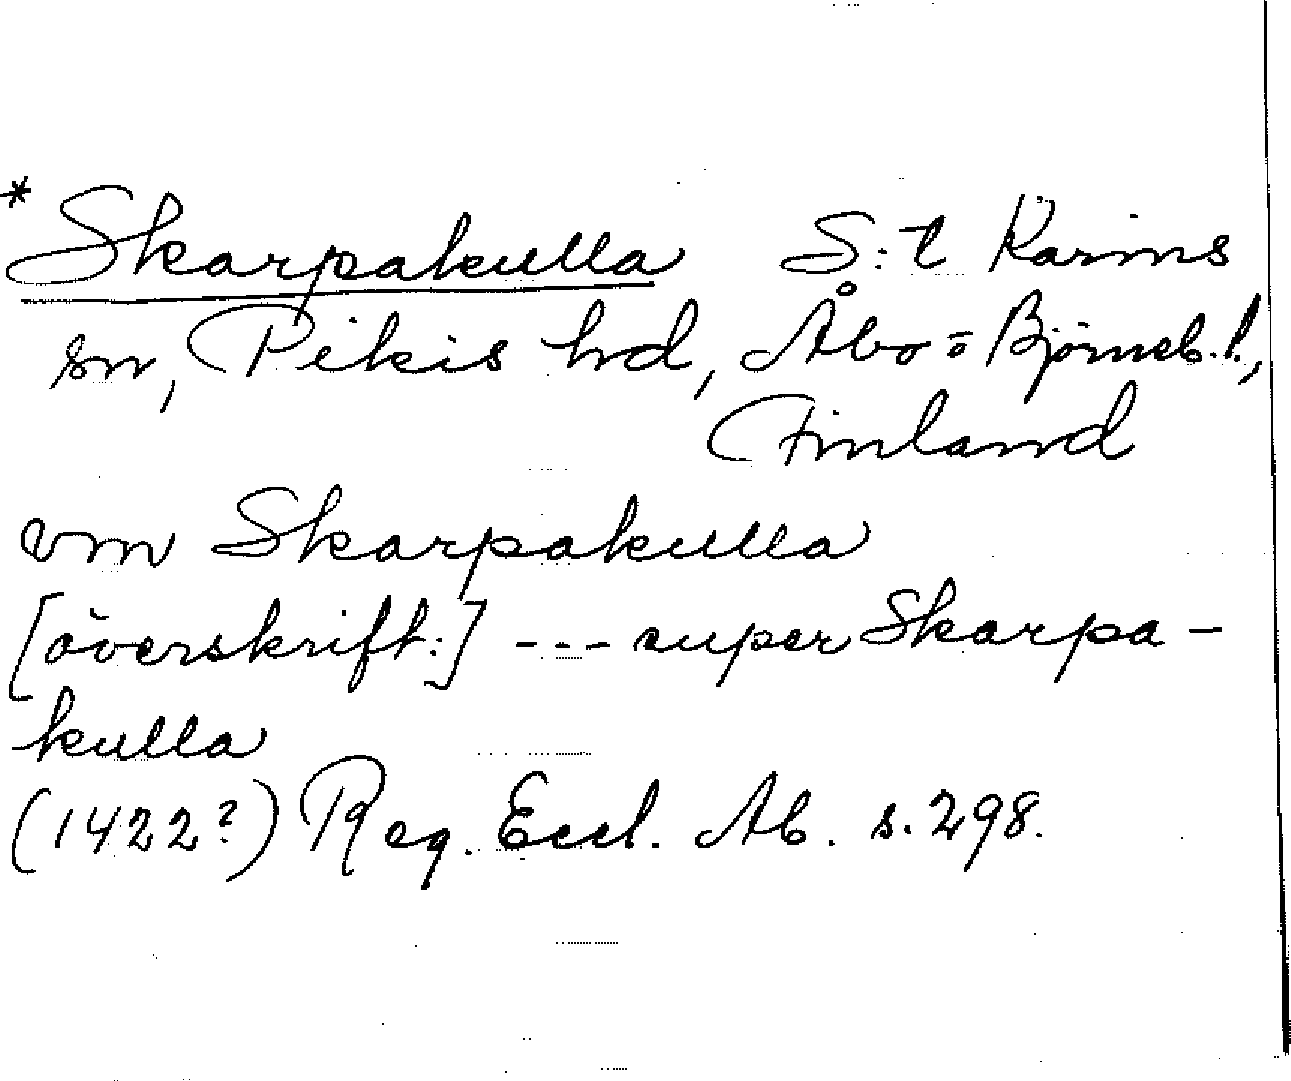 * Skarpakulla S:t Karins
sn, Pikis hd, Åbo = Björneb. l.,
Finland
om Skarpakulla
[överskrift:] --- super Skarpa -
kulla
(1422?) Reg. Eccl. Ab. s. 298.